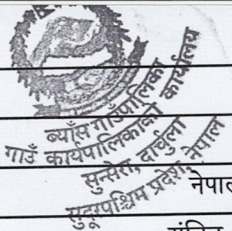 ब्याँस गाउँपालिका
गाउँ कार्यपालिकाको कार्यालय
सुन्सेरा, दार्चुला
सुदूरपश्चिम प्रदेश, नेपाल
नेपाल